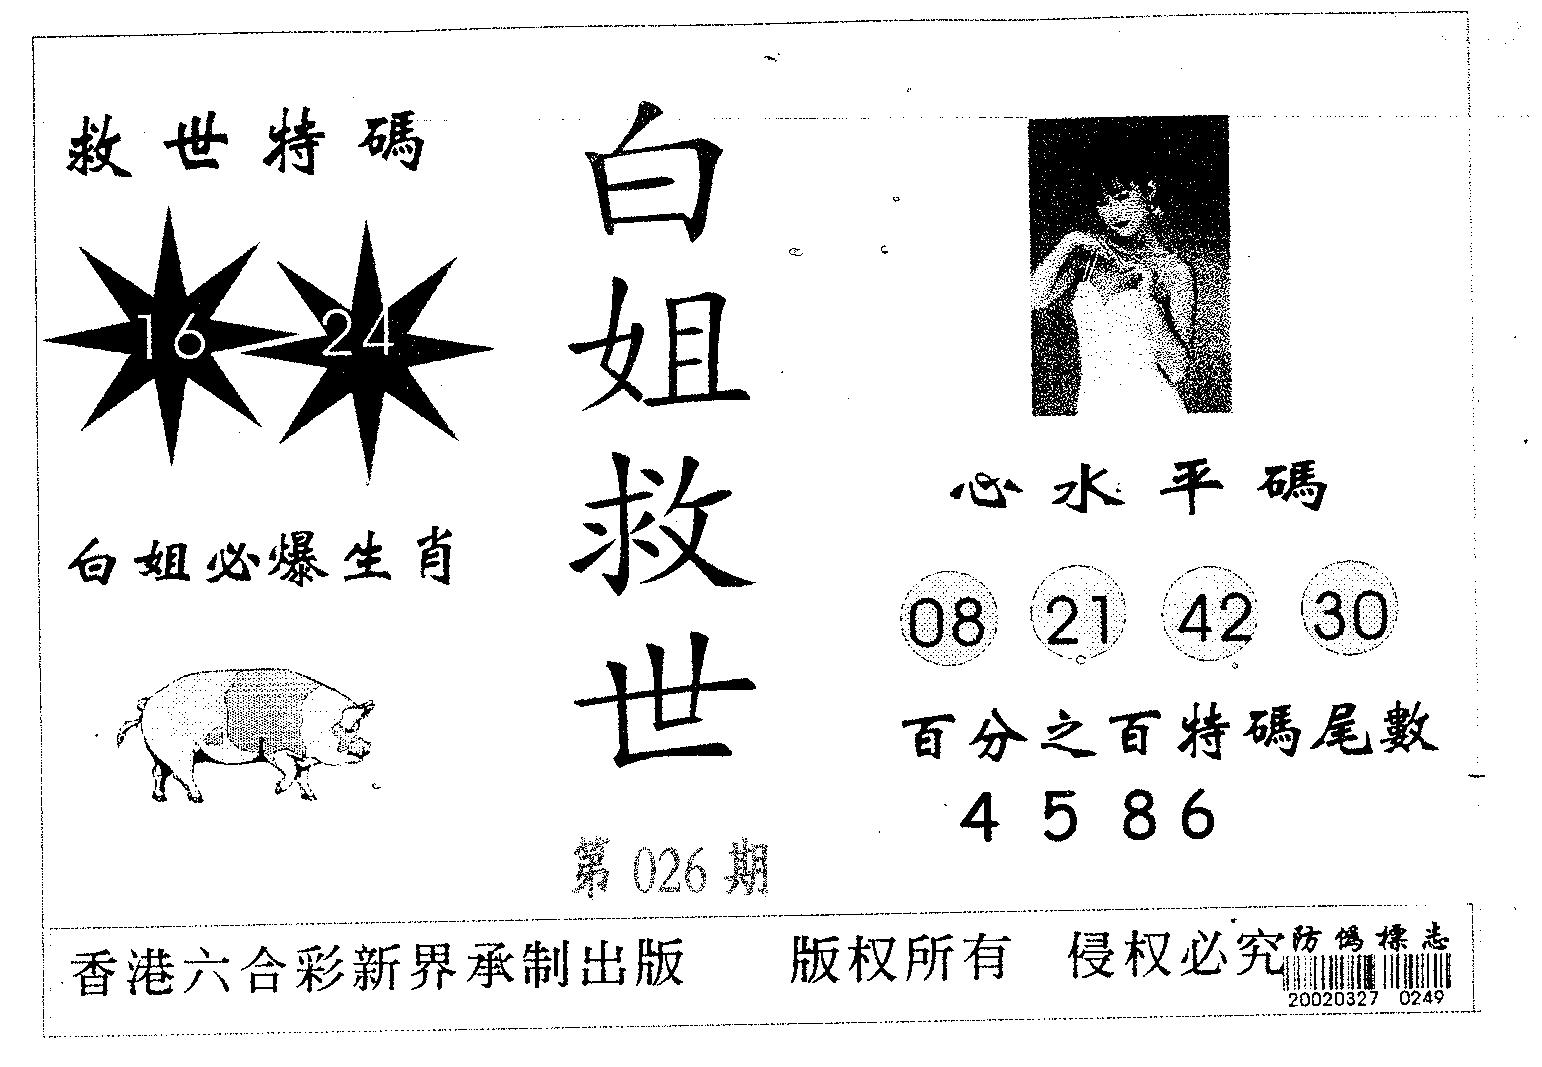 救世特碼
16 24
白姐必爆生肖
白姐救世
第026期
心水平碼
08 21 42 30
百分之百特碼尾數
4 5 8 6
香港六合彩新界承制出版 版权所有 侵权必究
防僞標志
20020327 0249